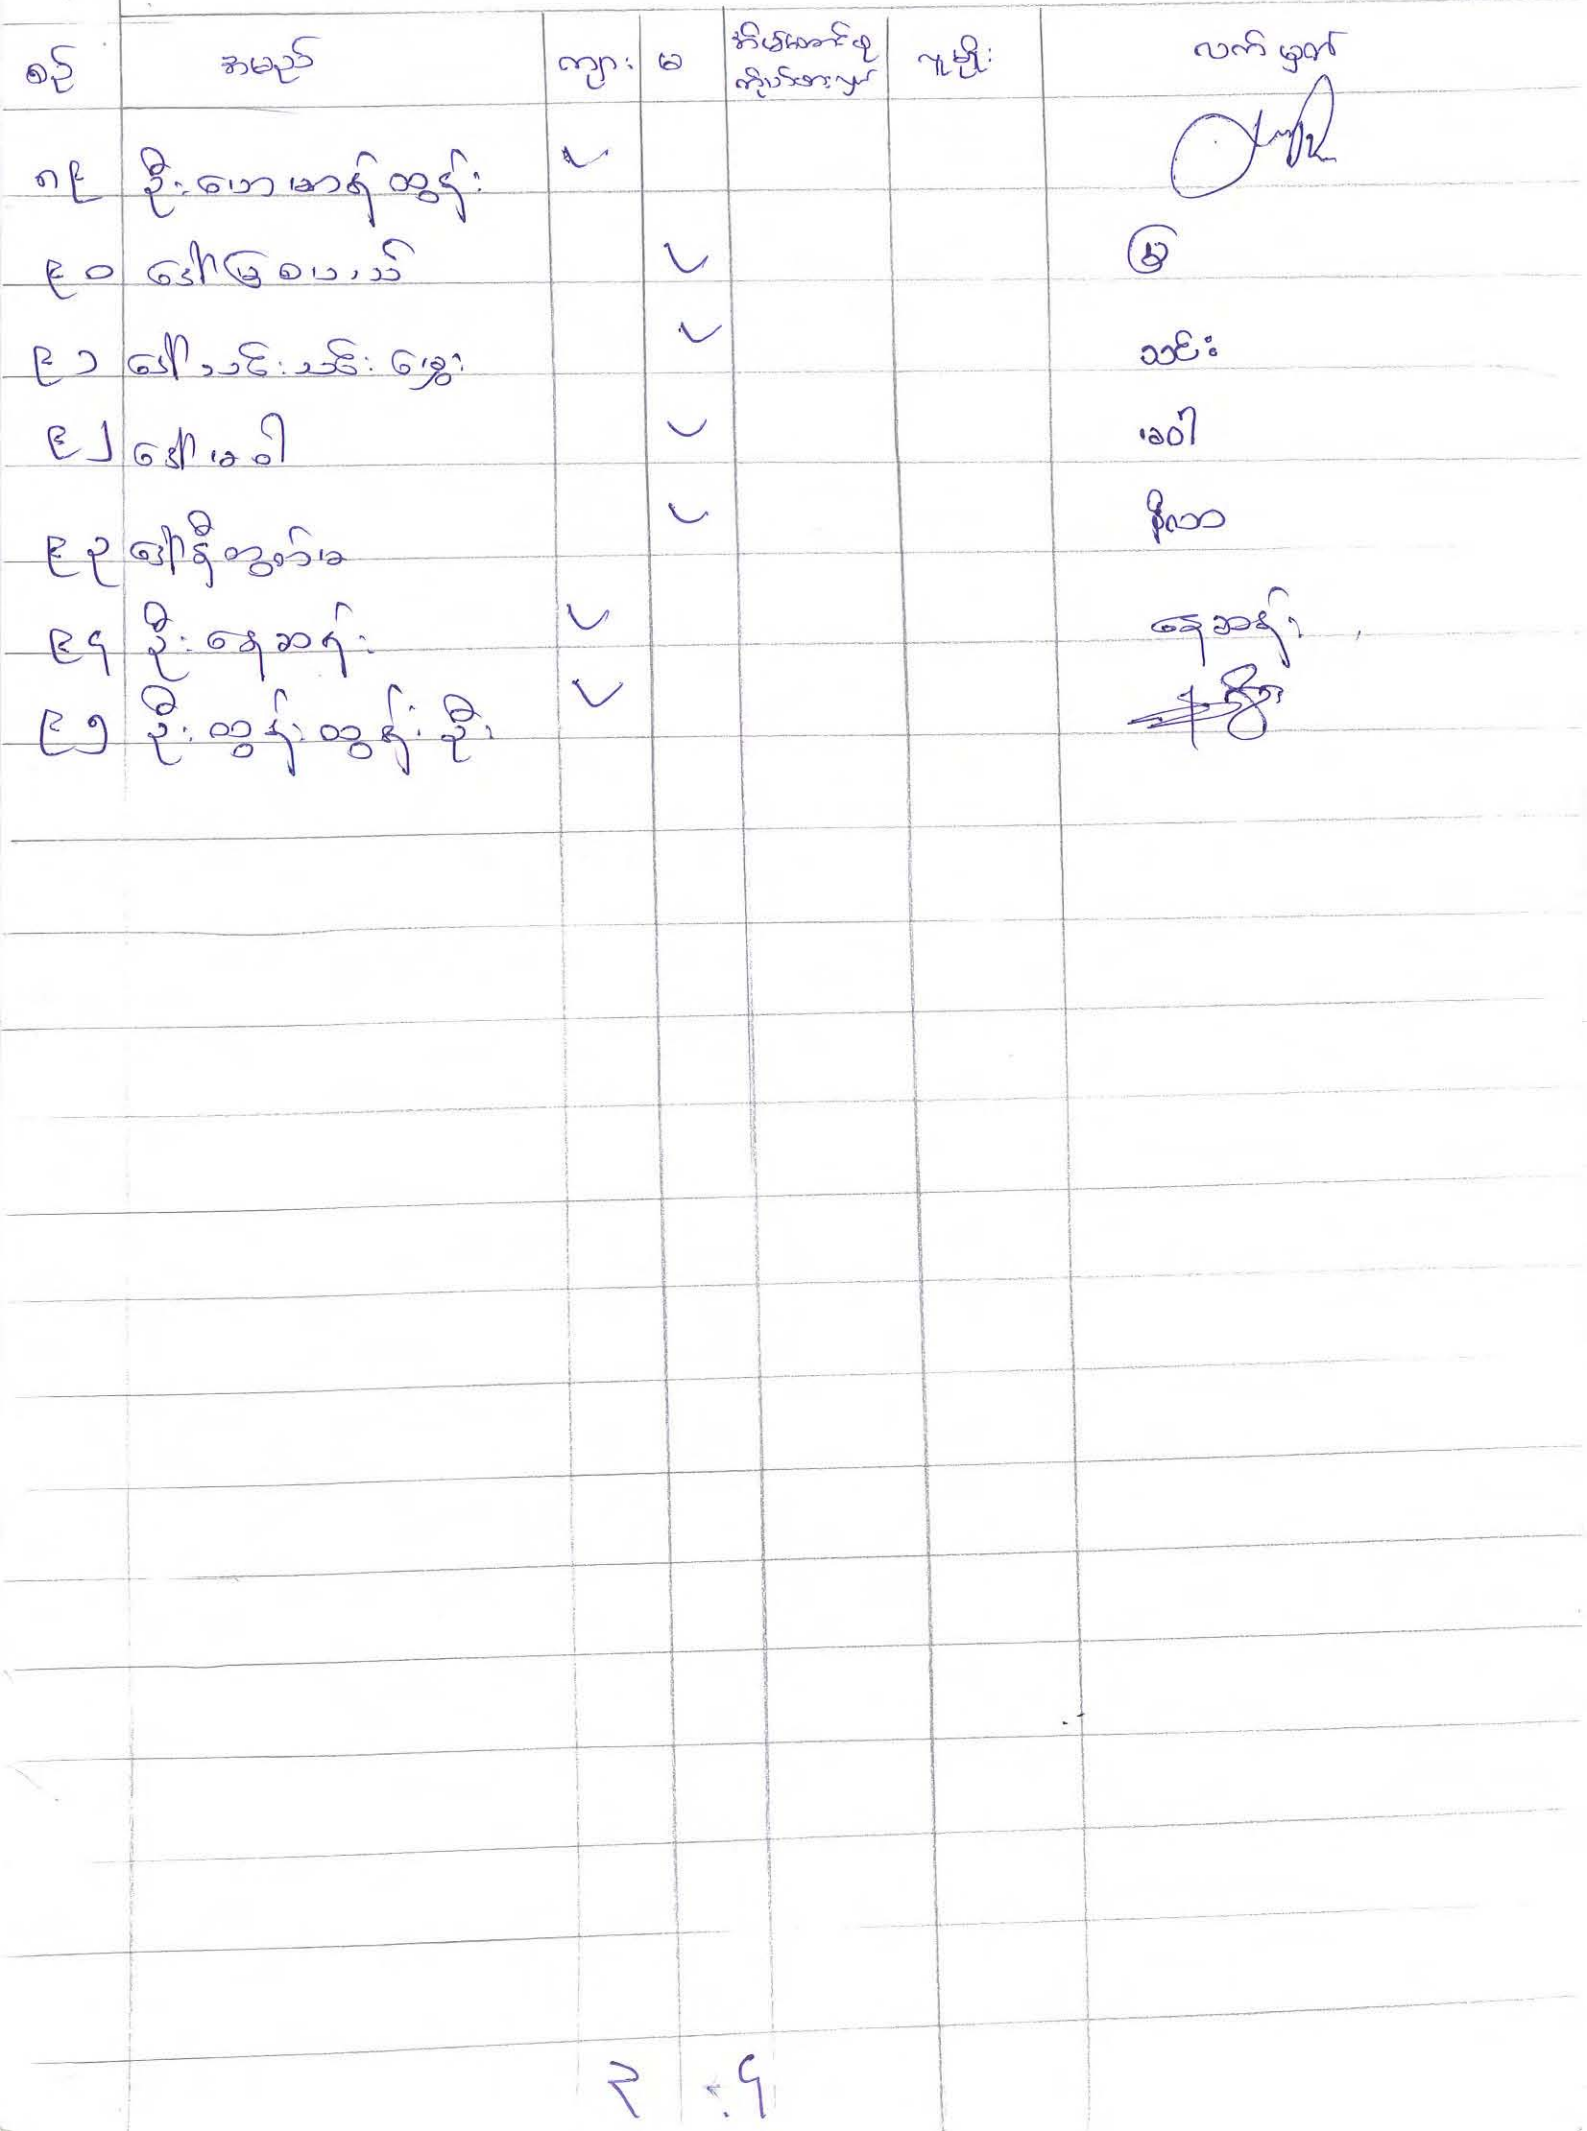 စဉ် အမည် ကျား မ အိမ်ထောင်စု ကိုယ်စားလှယ် လူမျိုး လက်မှတ်
၈၉ ဦးဟောမာရ်ထွန်း
၉၀ ဒေါ်မြစပယ် မြ
၉၁ ဒေါ်သင်းသင်းရွှေ သင်း
၉၂ ဒေါ်ခဝါ ခဝါ
၉၃ ဒေါ်နီ နီလာ
၉၄ ဦးနေဆန်း နေဆန်း
၉၅ ဦးထွန်းထွန်းဦး
၃ ၄